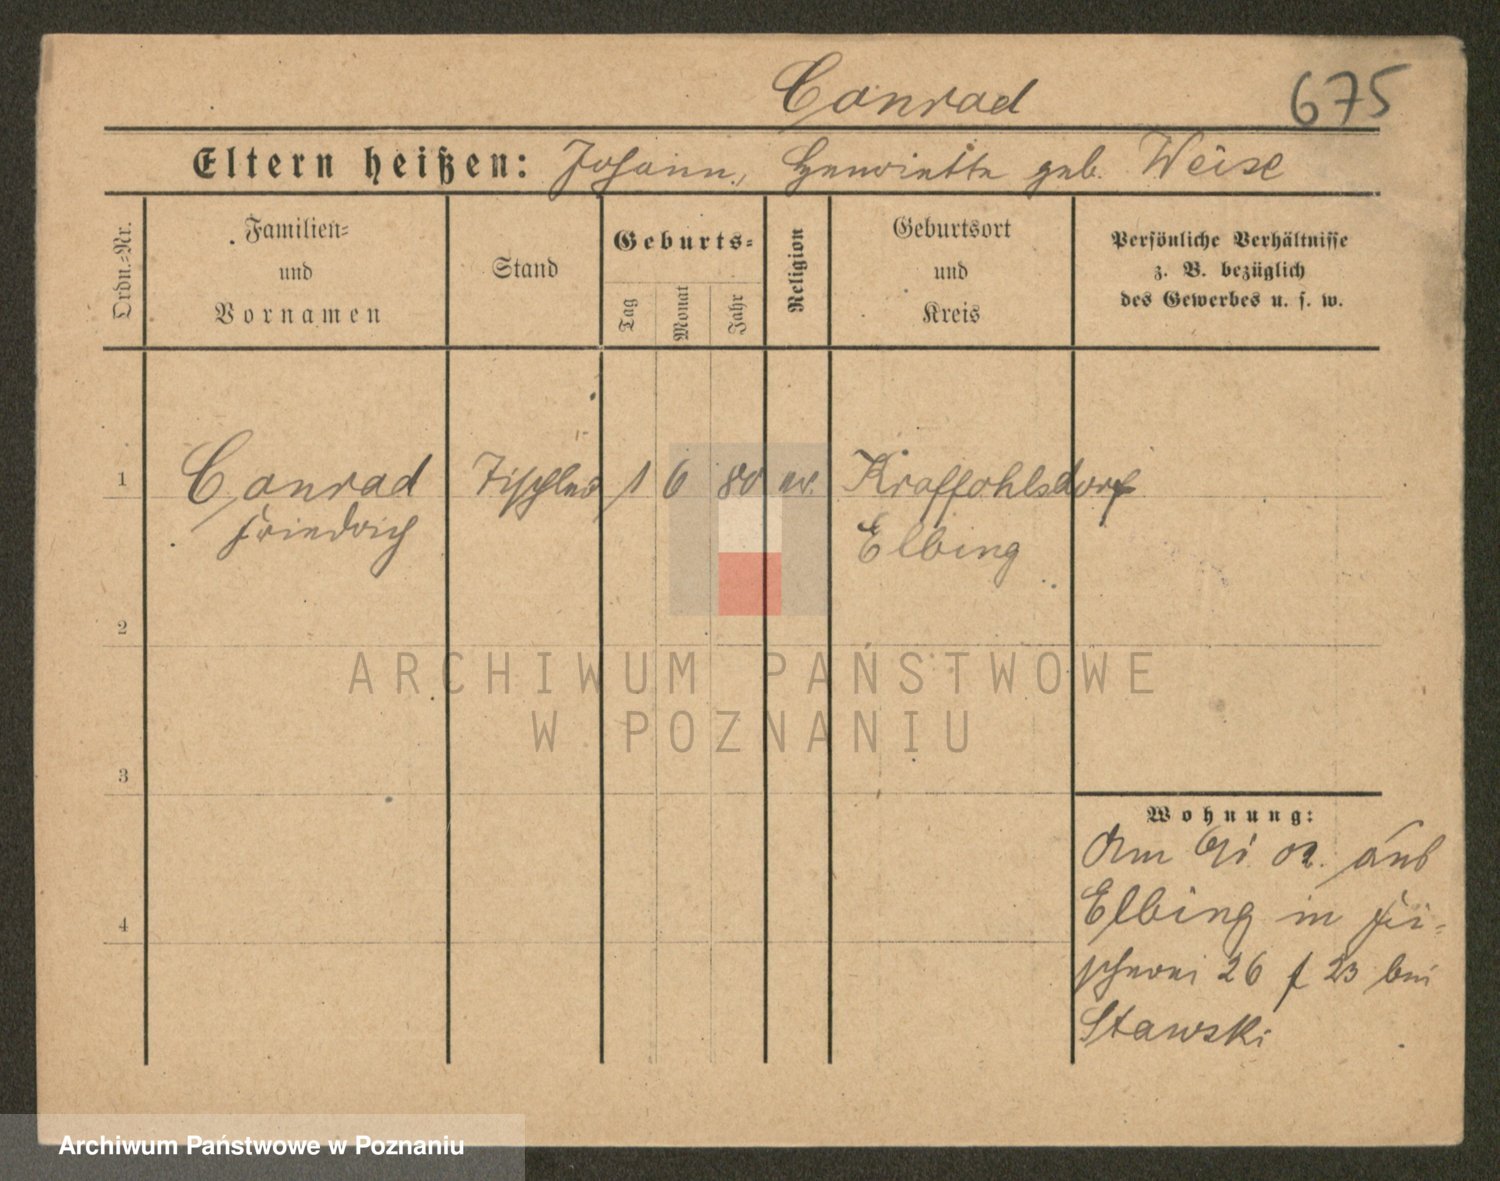 Conrad 675
Eltern heißen: Johann, Henriette geb. Weise
Ordn.-Nr.
Familien-
und
Vornamen
Stand
Geburts-
Tag
Monat
Jahr
Religion
Geburtsort
und
Kreis
Persönliche Verhältnisse
z. B. bezüglich
des Gewerbes u. s. w.
1 Conrad Tischler 1 6 80 ev. Kraffohlsdorf
Friedrich Elbing
2
ARCHIWUM PAŃSTWOWE
W POZNANIU
3
Wohnung:
Am 02. aus
4
Elbing in Fi-
scherei 26 f 23 bei
Stawski
Archiwum Państwowe w Poznaniu